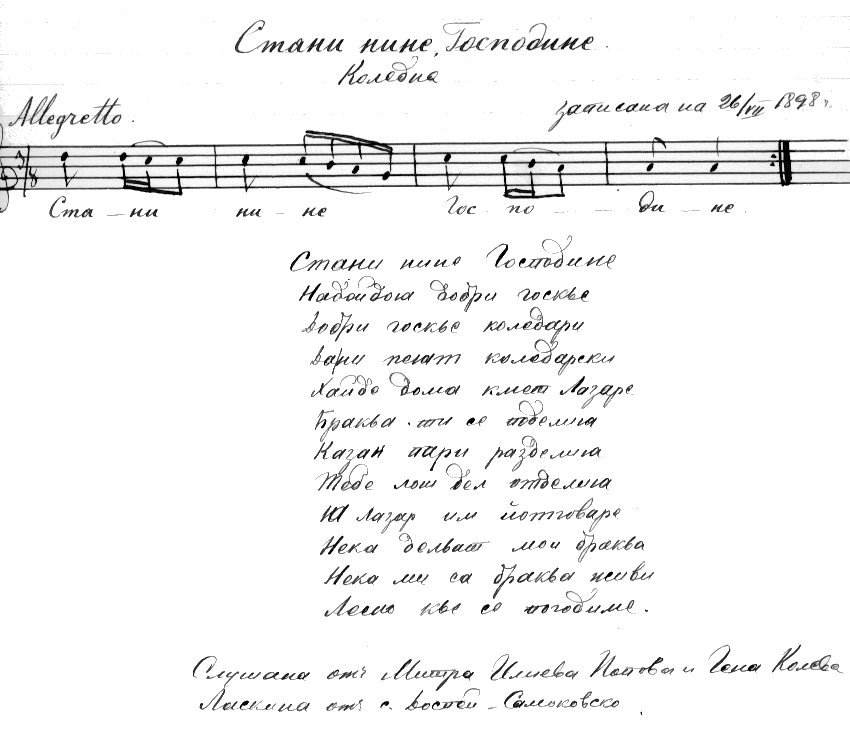 Стани нине, Господине.
Коледна
Allegretto.
записана на 26/VII 1898 г.
3/8
Ста – ни ни – не Гос по – ди – не.
Стани нине Господине
Надойдоа добри госкье
Добри госкье коледари
Дани пеют коледарски
Хайде дома кмет Лазаре
Браква ти се поделиа
Казан пари разделиа
Тебе лош дел отделиа
Лазар им йотговаре
Нека делват мои браква
Нека ми са браква живи
Лесно кье се погодиме.
Слушана отъ Митра Илиева Попова и Гена Колева
Ласкина отъ с. Доспей – Самоковско